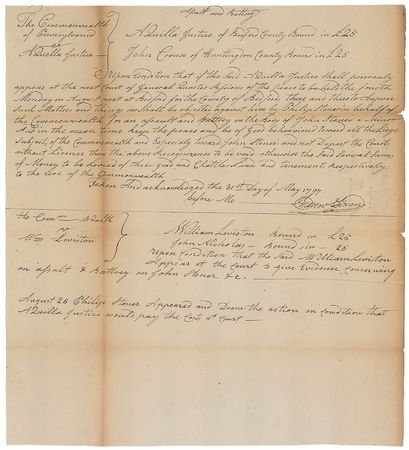 Assalt and Battery
The Commonwealth
of Pennsylvania
vs
AQuilla Justice
AQuilla Justice of Bedford County Bound in £25
John Crouse of Huntingdon County Bound in £25
Upon Condition that if the Said AQuilla Justice Shall personaly
appear at the next Court of General Quarter Sessions of the peace to be held the fourth
Monday in August next at Bedford for the County of Bedford then and there to Answer
Such Matters and things as Shall be objected against him by Philip Stoner in behalf of
the Commonwealth for an assault and battery on the Body of John Stoner a Minor
And in the mean time keep the peace and be of Good behaviour toward all the Liege
Subjects of the Commonwealth and Especialy toward John Stoner and not Depart the Court
without Licence then the above Recognizance to be void otherwise the Said Several Sums
of Money to be Levied of their good and Chattles Land and tenement respectively
to the use of the Commonwealth
Taken And acknowledged the 31st Day of May 1797
before Me
the Comn Wealth
vs
Wm Leviston
William Leviston Bound in £25
John Nicholas - Bound in - 25
Upon Condition that the Said William Leviston
Appear at the Court to give Evidence Concerning
an assalt & Battery on John Stoner &c.
August 28 Philip Stoner Appeared and Drew the action on Condition that
AQuilla Justice would pay the Cost at Court